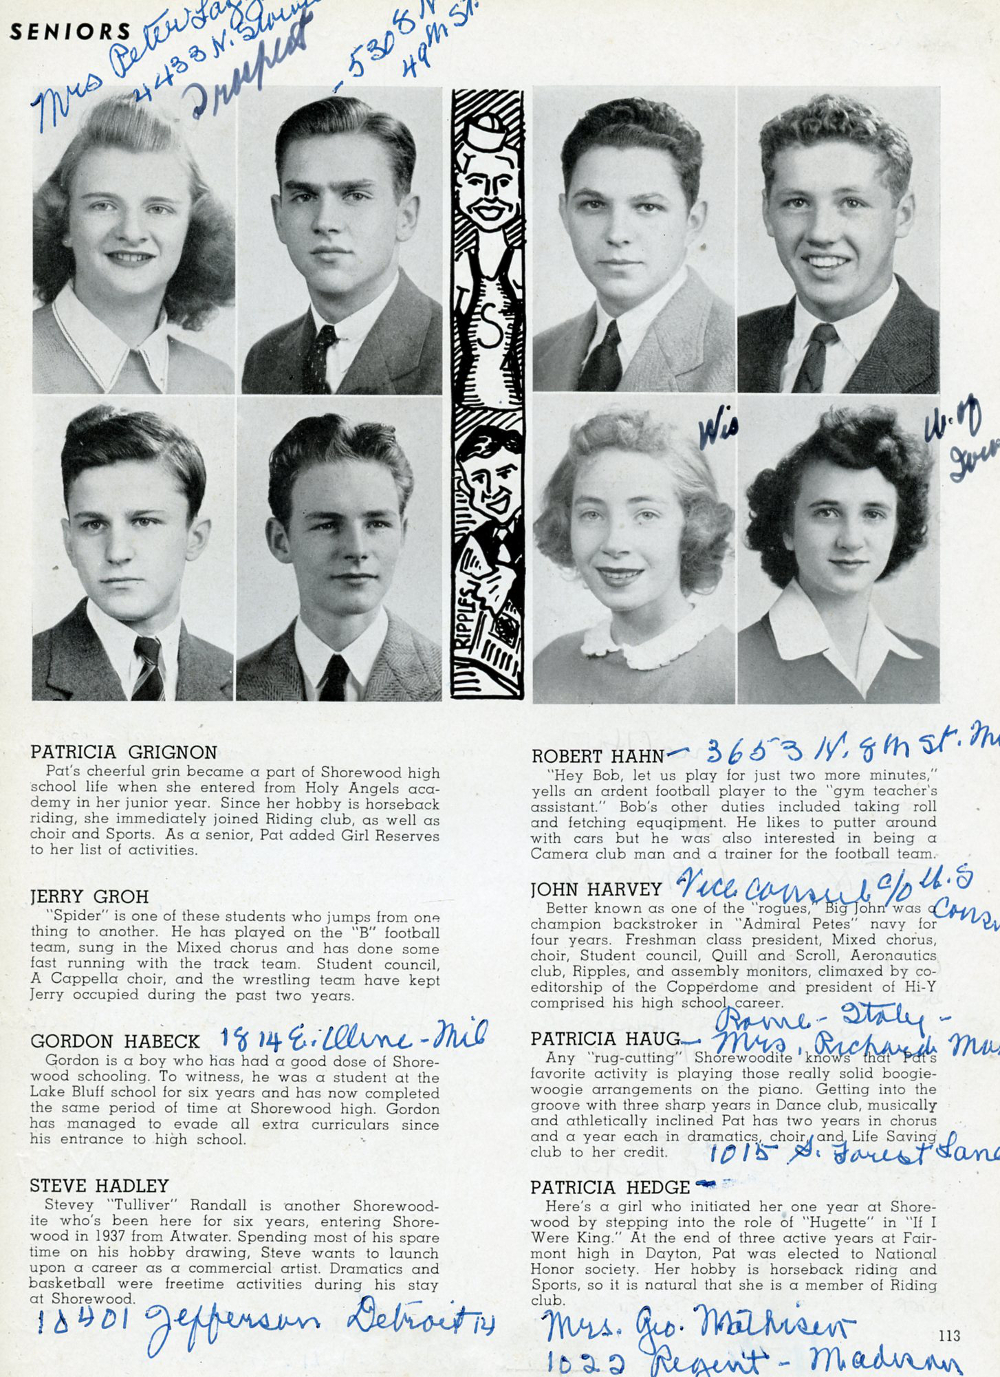 SENIORS
Mrs Peter
4433 N.
Prospect
5308 N
49th St.
S
RIPPLES
Wis
U. of
PATRICIA GRIGNON
Pat's cheerful grin became a part of Shorewood high
school life when she entered from Holy Angels aca-
demy in her junior year. Since her hobby is horseback
riding, she immediately joined Riding club, as well as
choir and Sports. As a senior, Pat added Girl Reserves
to her list of activities.
JERRY GROH
"Spider" is one of these students who jumps from one
thing to another. He has played on the "B" football
team, sung in the Mixed chorus and has done some
fast running with the track team. Student council,
A Cappella choir, and the wrestling team have kept
Jerry occupied during the past two years.
GORDON HABECK 1814 E. - Mil
Gordon is a boy who has had a good dose of Shore-
wood schooling. To witness, he was a student at the
Lake Bluff school for six years and has now completed
the same period of time at Shorewood high. Gordon
has managed to evade all extra curriculars since
his entrance to high school.
STEVE HADLEY
Stevey "Tulliver" Randall is another Shorewood-
ite who's been here for six years, entering Shore-
wood in 1937 from Atwater. Spending most of his spare
time on his hobby drawing, Steve wants to launch
upon a career as a commercial artist. Dramatics and
basketball were freetime activities during his stay
at Shorewood.
18401 Jefferson Detroit 14
ROBERT HAHN - 3653 N. 8th St.
"Hey Bob, let us play for just two more minutes,"
yells an ardent football player to the "gym teacher's
assistant." Bob's other duties included taking roll
and fetching equqipment. He likes to putter around
with cars but he was also interested in being a
Camera club man and a trainer for the football team.
JOHN HARVEY Vice consul c/o U.S
Better known as one of the "rogues," Big John was a
champion backstroker in "Admiral Petes" navy for
four years. Freshman class president, Mixed chorus,
choir, Student council, Quill and Scroll, Aeronautics
club, Ripples, and assembly monitors, climaxed by co-
editorship of the Copperdome and president of Hi-Y
comprised his high school career.
Rome - Italy -
PATRICIA HAUG - Mrs. Richard
Any "rug-cutting" Shorewoodite knows that Pat's
favorite activity is playing those really solid boogie-
woogie arrangements on the piano. Getting into the
groove with three sharp years in Dance club, musically
and athletically inclined Pat has two years in chorus
and a year each in dramatics, choir and Life Saving
club to her credit. 1015 S. Forest Lane
PATRICIA HEDGE -
Here's a girl who initiated her one year at Shore-
wood by stepping into the role of "Hugette" in "If I
Were King." At the end of three active years at Fair-
mont high in Dayton, Pat was elected to National
Honor society. Her hobby is horseback riding and
Sports, so it is natural that she is a member of Riding
club.
Mrs. Geo. Mathisen
1022 Regent - Madison
113